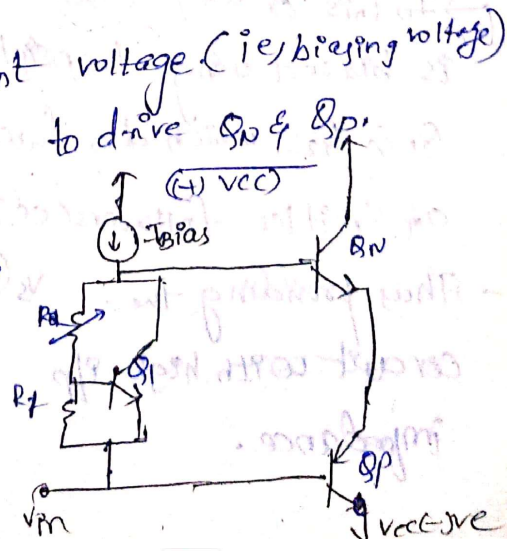 nt voltage (ie, biasing voltage)
to drive QN & QP.
(+) VCC
IBias
QN
R2
Q1
R1
QP
Vin
Vcc(-)ve